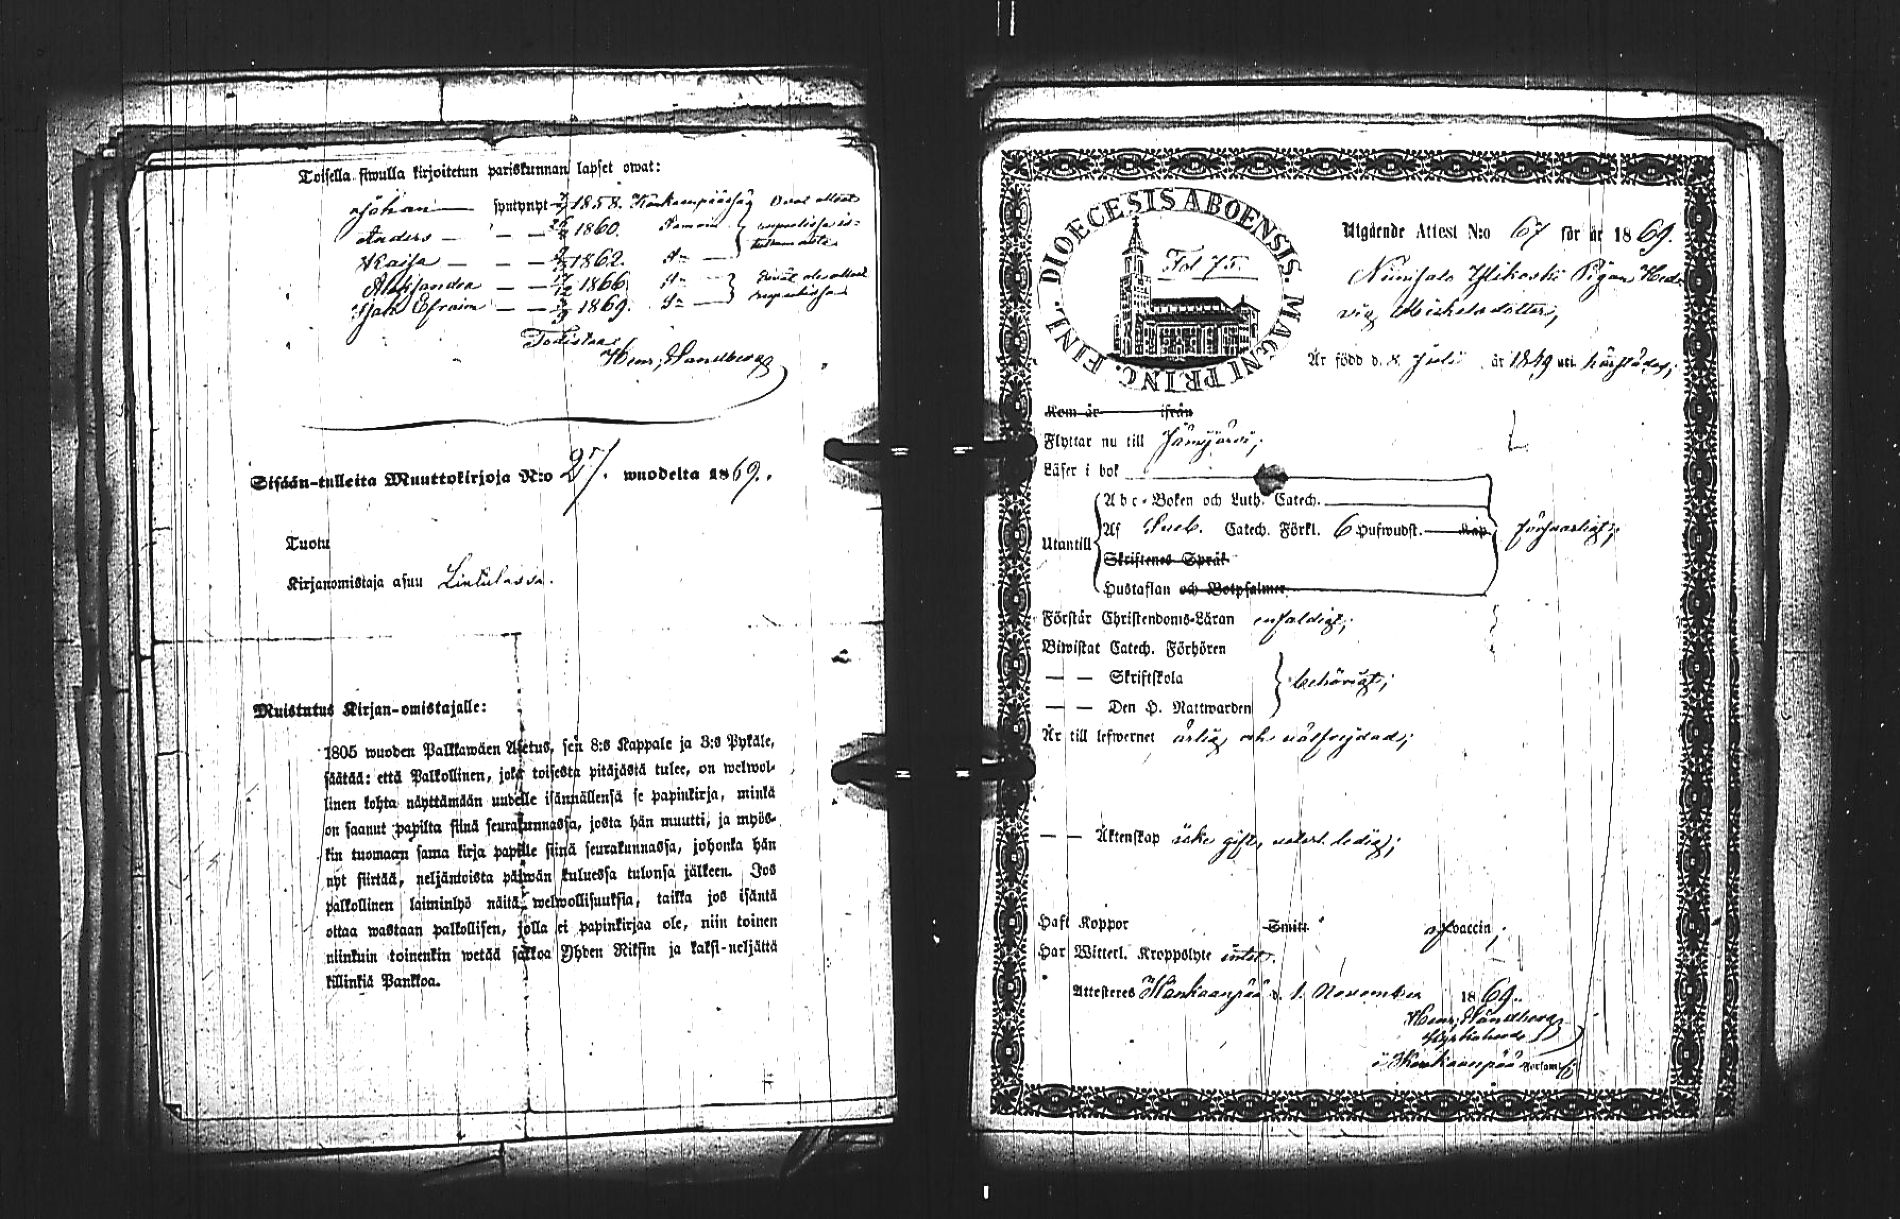 Toisella siwulla kirjoitetun pariskunnan lapset owat:
Johan — syntynyt 1858. Kankaanpäässä
Anders — — — 1860. Samoin
Kaisa — — — 1862. S:n
Aleksandra — — 1866 S:n
Isak Efraim — — 1869. S:n
Todistaa
Henr. Sandberg
Sisään-tulleita Muuttokirjoja N:o 27. wuodelta 1869.
Tuotu
Kirjanomistaja asuu
Muistutus Kirjan-omistajalle:
1805 wuoden Palkkawäen Asetus, sen 8:s Kappale ja 3:s Pykäle,
säätää: että Palkollinen, joka toisesta pitäjästä tulee, on welwol-
linen kohta näyttämään uudelle isännällensä se papinkirja, minkä
on saanut papilta siinä seurakunnassa, josta hän muutti, ja myös-
kin tuomaan sama kirja papille siinä seurakunnassa, johonka hän
nyt siirtää, neljäntoista päiwän kuluessa tulonsa jälkeen. Jos
palkollinen laiminlyö näitä welwollisuuksia, taikka jos isäntä
ottaa wastaan palkollisen, jolla ei papinkirjaa ole, niin toinen
niinkuin toinenkin wetää sakkoa Yhden Riksin ja kaksi-neljättä
killinkiä Pankkoa.
DIOECESIS ABOENSIS. MAGNI PRINC. FINL.
Fol 75.
Utgående Attest N:o 67 för år 1869.
Niinisalo Ylikoski Pigan Hed-
vig Michelsdotter,
Är född d. 8 Juli år 1849 uti härstädes;
Kom år ifrån
Flyttar nu till Jämijärvi;
Läser i bok
Abc-Boken och Luth. Catech.
Utantill Af Sveb. Catech. Förkl. 6 Hufwudst. Kap. försvarligt;
Skriftenes Språk
Hustaflan och Botpsalmer
Förstår Christendoms-Läran enfaldigt;
Biwistat Catech. Förhören
— — Skriftskola behörigt;
— — Den H. Nattwarden
Är till lefwernet ärlig och välfrejdad;
— — Äktenskap icke gift, utan ledig;
Haft Koppor Smitt. af vaccin;
Har Witterl. Kroppslyte intet.
Attesteres Kankaanpää d. 1. November 1869.
Henr. Sandberg
Kyrkoherde
i Kankaanpää Församl.